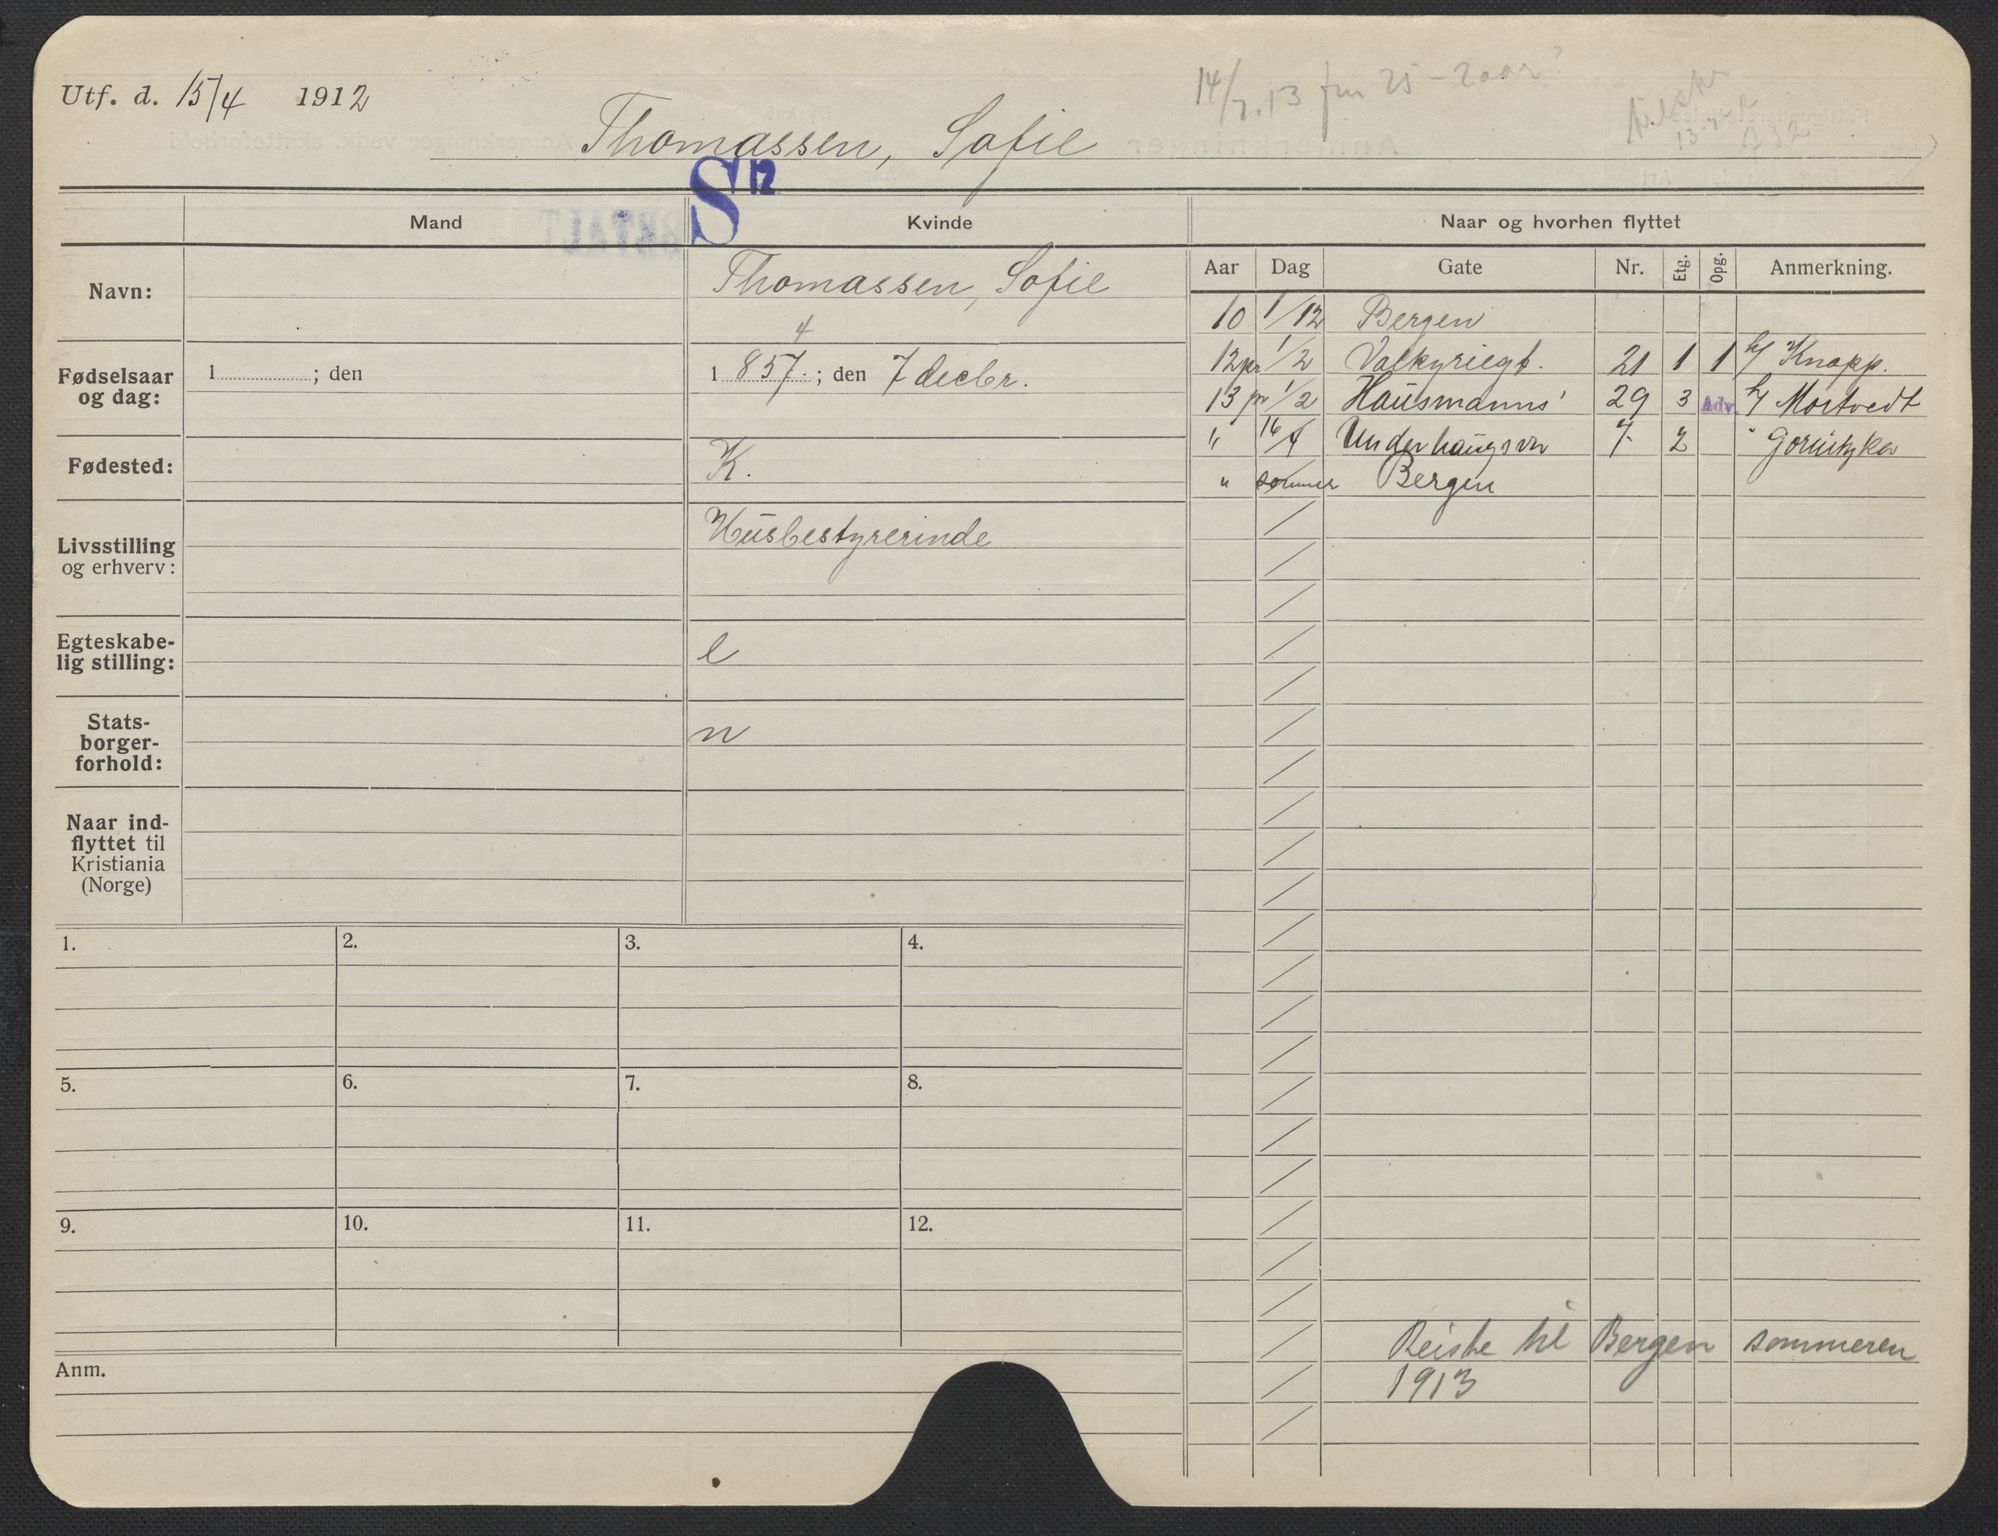 Utf. d. 15/4 1912
Thomassen, Sofie
14/2.13
S 12
Mand
Kvinde
Naar og hvorhen flyttet
Navn:
Thomassen, Sofie
4
Fødselsaar og dag:
1 ; den
1 857. ; den 7 decbr.
Fødested:
K.
Livsstilling og erhverv:
Husbestyrerinde
Egteskabe-
lig stilling:
e
Stats-
borger-
forhold:
n
Naar ind-
flyttet til
Kristiania
(Norge)
Aar Dag Gate Nr. Etg. Opg. Anmerkning.
10 1/12 Bergen
12 pr 1/2 Valkyriegt. 21 1 1 h/ Knapp.
13 pr 1/2 Hausmanns' 29 3 Adv. h/ Mortvedt
" 16/4 Underhaugsvn 7. 2 "
" sommer Bergen
1. 2. 3. 4.
5. 6. 7. 8.
9. 10. 11. 12.
Reiste til Bergen sommeren
1913
Anm.